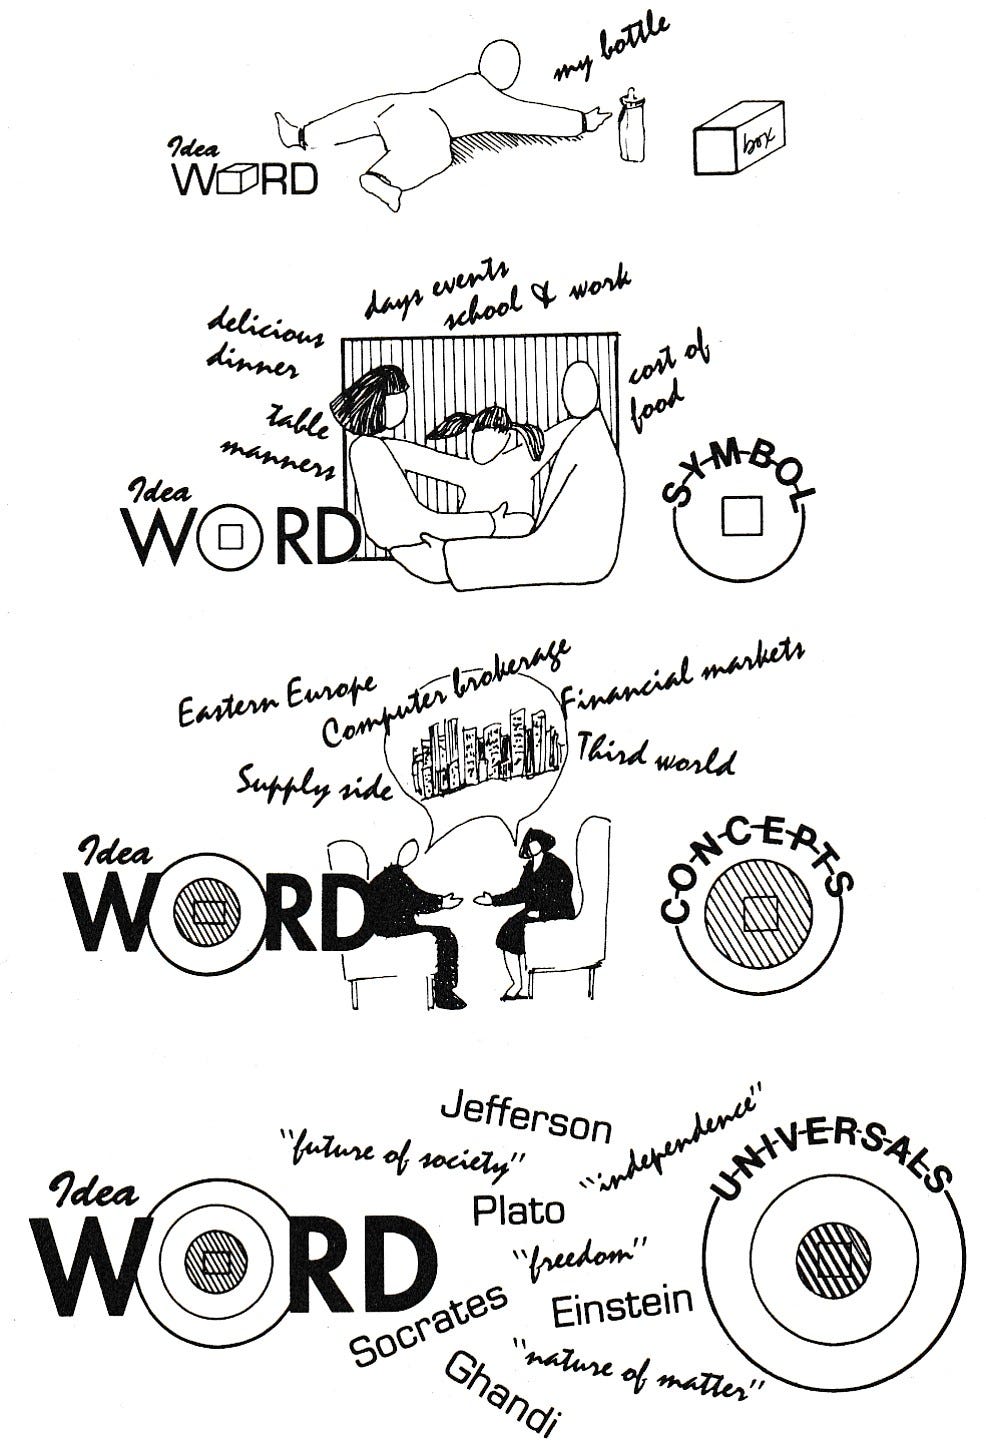 my bottle
Idea
WORD
box
days events
school & work
delicious
dinner
cost of
food
table
manners
Idea
WORD
SYMBOL
Eastern Europe
Computer brokerage
Financial markets
Supply side
Third world
Idea
WORD
CONCEPTS
Jefferson
"future of society"
"independence"
UNIVERSALS
Idea
WORD
Plato
"freedom"
Socrates
Einstein
"nature of matter"
Ghandi